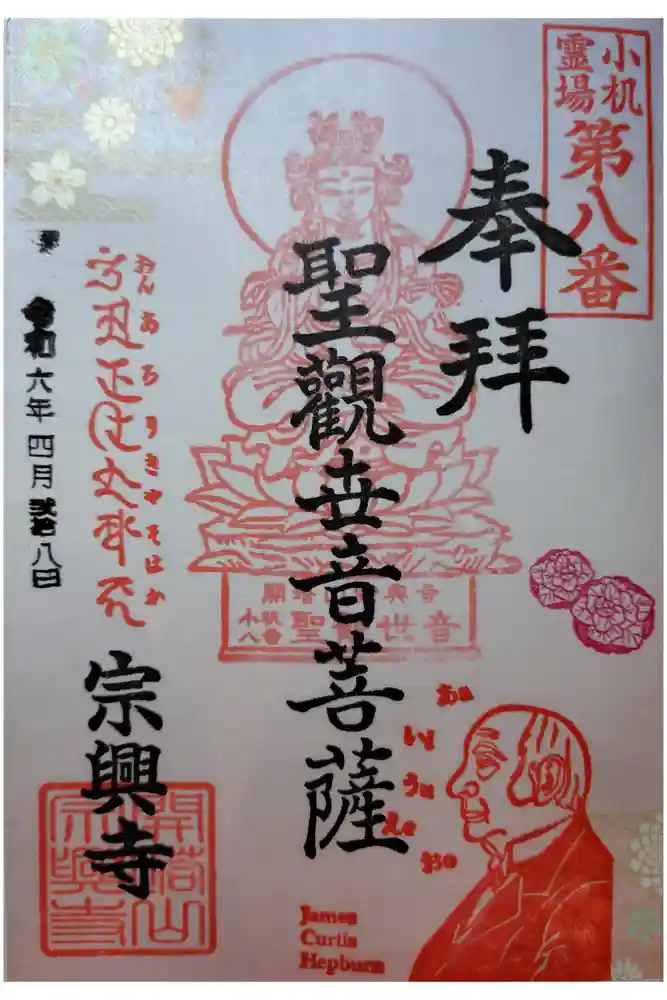 小机
霊場
第八番
奉拝
聖觀世音菩薩
小机
八番
聖觀世音
おんあろりきやそはか
令和六年四月弐拾八日
宗興寺
開塔山
宗興寺
あa
いi
うu
えe
おo
James
Curtis
Hepburn